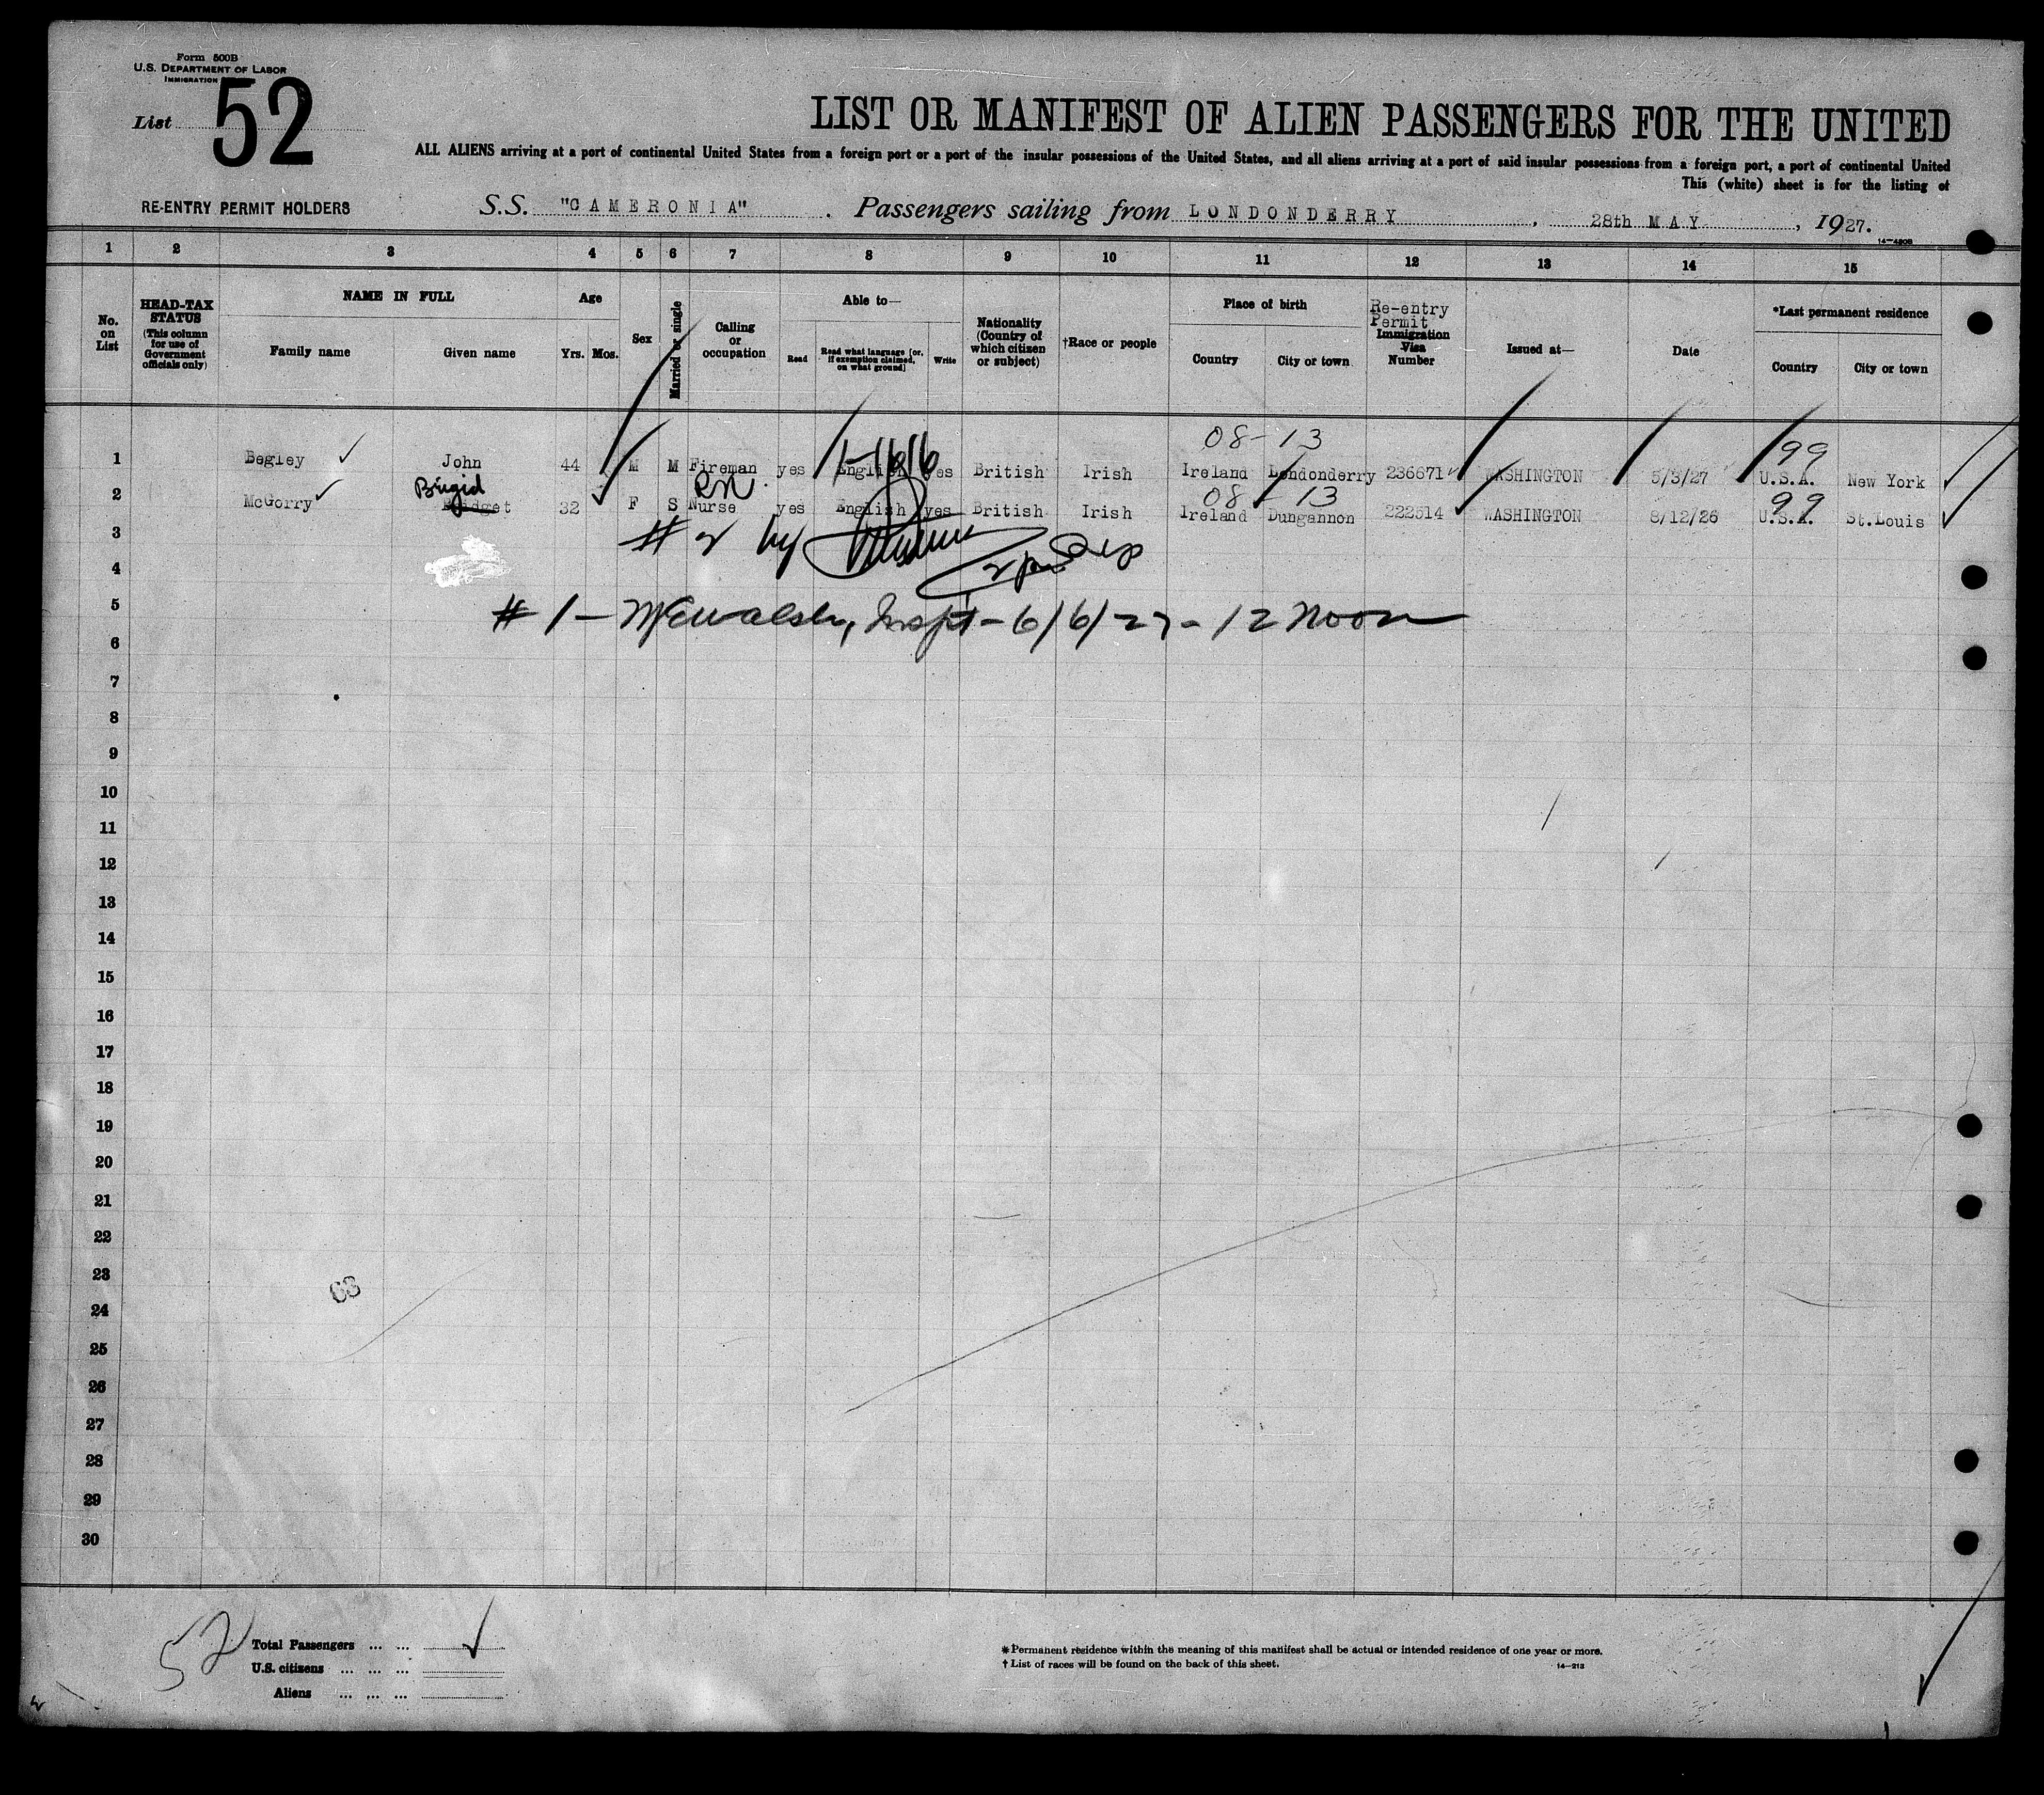 Form 500B
U.S. DEPARTMENT OF LABOR
IMMIGRATION
List 52
LIST OR MANIFEST OF ALIEN PASSENGERS FOR THE UNITED
ALL ALIENS arriving at a port of continental United States from a foreign port or a port of the insular possessions of the United States, and all aliens arriving at a port of said insular possessions from a foreign port, a port of continental United
This (white) sheet is for the listing of
RE-ENTRY PERMIT HOLDERS S.S. "CAMERONIA" . Passengers sailing from LONDONDERRY , 28th MAY , 1927.
14-4808
1 2 3 4 5 6 7 8 9 10 11 12 13 14 15
No. on List
HEAD-TAX STATUS (This column for use of Government officials only)
NAME IN FULL
Family name Given name
Age
Yrs. Mos.
Sex
Married or single
Calling or occupation
Able to—
Read Read what language [or, if exemption claimed, on what ground] Write
Nationality (Country of which citizen or subject)
†Race or people
Place of birth
Country City or town
Re-entry Permit Immigration Visa Number
Issued at—
Date
*Last permanent residence
Country City or town
08-13 99
1 Begley John 44 M M Fireman yes English yes British Irish Ireland Londonderry 236671 WASHINGTON 5/3/27 U.S.A. New York
Brigid RN 08-13 99
2 McGorry Bridget 32 F S Nurse yes English yes British Irish Ireland Dungannon 222514 WASHINGTON 8/12/26 U.S.A. St.Louis
3
# 2 by
4
5
# 1 - Walsh, Inspt - 6/6/27 - 12 Noon
6
7
8
9
10
11
12
13
14
15
16
17
18
19
20
21
22
23
63
24
25
26
27
28
29
30
52
Total Passengers ... ...
U.S. citizens ... ... ...
Aliens ... ... ...
*Permanent residence within the meaning of this manifest shall be actual or intended residence of one year or more.
† List of races will be found on the back of this sheet.
14-213